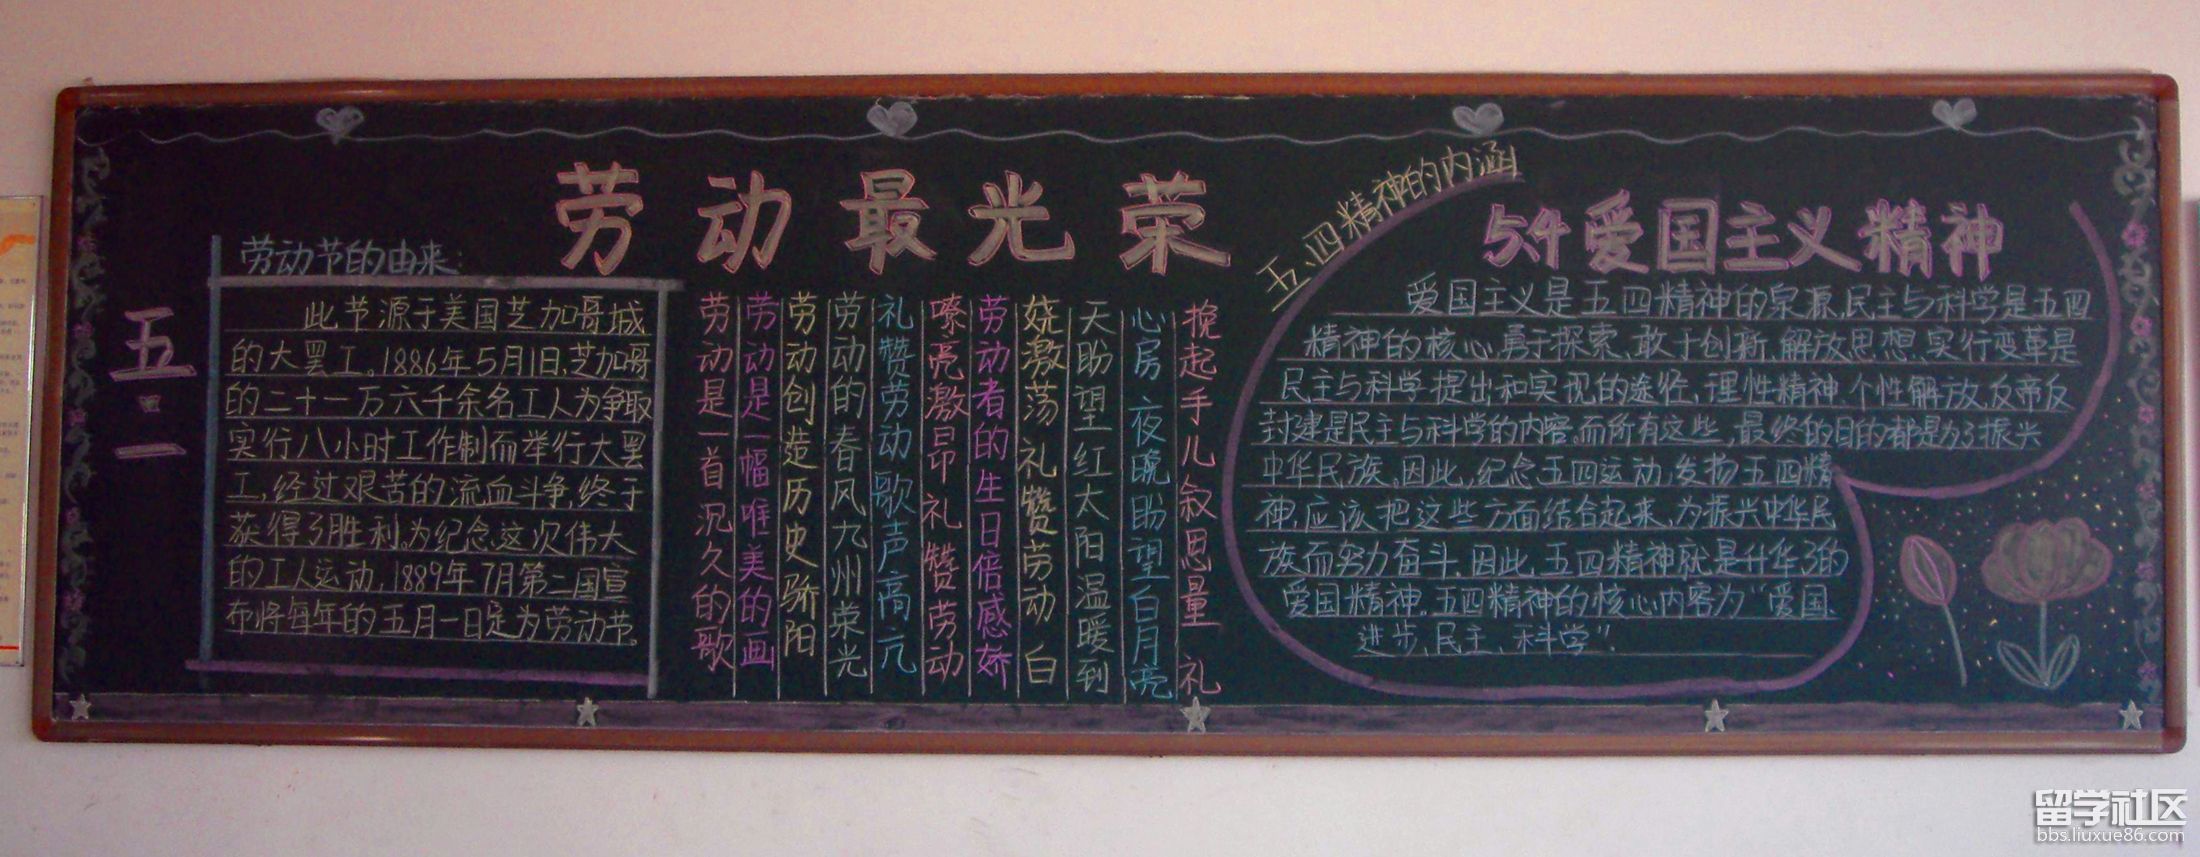 劳动最光荣
五·一
劳动节的由来:
此节源于美国芝加哥城
的大罢工。1886年5月1日,芝加哥
的二十一万六千余名工人为争取
实行八小时工作制而举行大罢
工,经过艰苦的流血斗争,终于
获得了胜利。为纪念这次伟大
的工人运动,1889年7月第二国宣
布将每年的五月一日定为劳动节。
劳动是一首沉久的歌
劳动是一幅唯美的画
劳动创造历史骄阳
劳动的春风九州荣光
礼赞劳动歌声高亢
嘹亮激昂礼赞劳动
劳动者的生日倍感娇
娆激荡礼赞劳动 白
天盼望红太阳温暖到
心房 夜晚盼望白月亮
挽起手儿叙思量 礼
五、四精神的内涵
54爱国主义精神
爱国主义是五四精神的泉源,民主与科学是五四
精神的核心,勇于探索、敢于创新、解放思想、实行变革是
民主与科学提出和实现的途径,理性精神、个性解放、反帝反
封建是民主与科学的内容。而所有这些,最终的目的都是为了振兴
中华民族。因此,纪念五四运动,发扬五四精
神,应该把这些方面结合起来,为振兴中华民
族而努力奋斗。因此,五四精神就是升华了的
爱国精神。五四精神的核心内容为"爱国、
进步、民主、科学".
留学社区
bbs.liuxue86.com